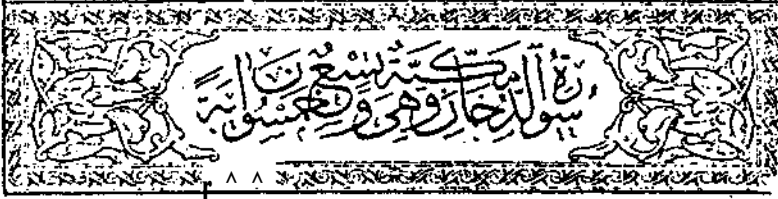 سورة الدخان مكية وهي تسع وخمسون آية